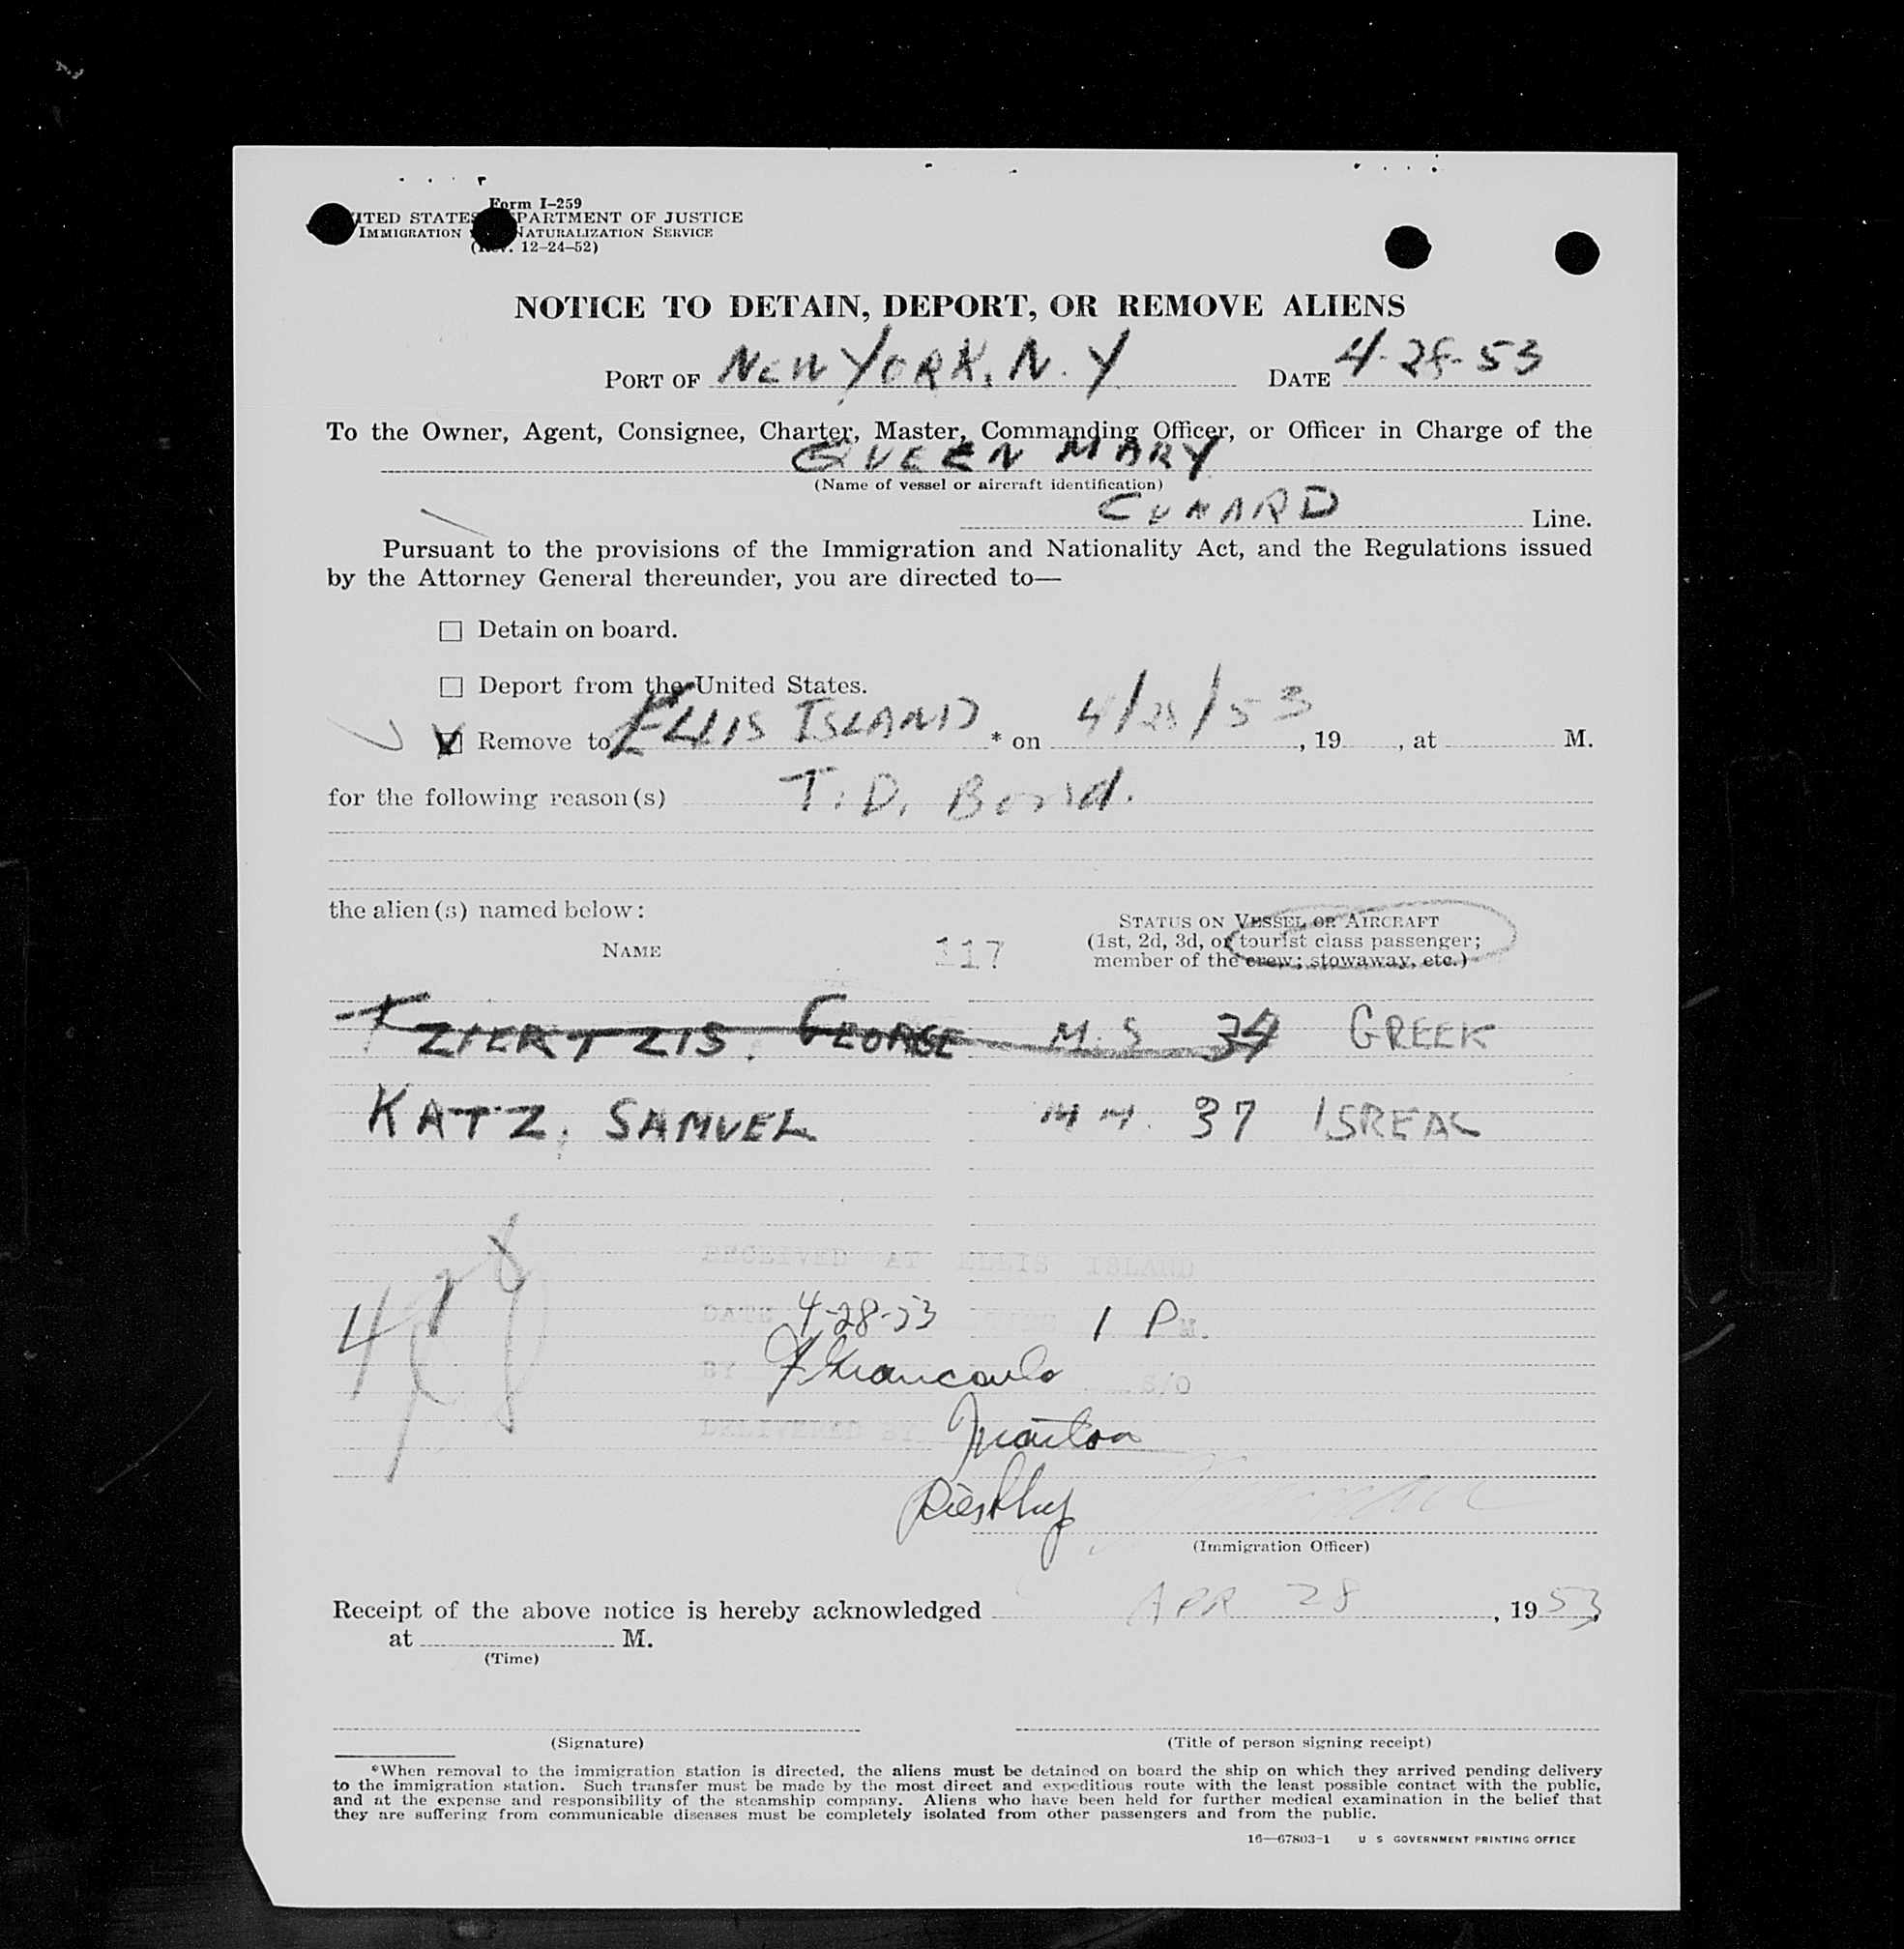 Form I–259
UNITED STATES DEPARTMENT OF JUSTICE
IMMIGRATION NATURALIZATION SERVICE
(Rev. 12–24–52)
NOTICE TO DETAIN, DEPORT, OR REMOVE ALIENS
PORT OF NEW YORK, N. Y. DATE 4-28-53
To the Owner, Agent, Consignee, Charter, Master, Commanding Officer, or Officer in Charge of the
QUEEN MARY
(Name of vessel or aircraft identification)
CUNARD Line.
Pursuant to the provisions of the Immigration and Nationality Act, and the Regulations issued
by the Attorney General thereunder, you are directed to—
☐ Detain on board.
☐ Deport from the United States.
☑ Remove to ELLIS ISLAND * on 4/28/53, 19 , at M.
for the following reason(s) T. D. Board.
the alien(s) named below:
STATUS ON VESSEL OR AIRCRAFT
NAME 117 (1st, 2d, 3d, or tourist class passenger;
member of the crew; stowaway, etc.)
GEORGE M. S 34 GREEK
KATZ, SAMUEL M M. 37 ISREAL
RECEIVED AT ELLIS ISLAND
4/28
DATE 4-28-53 TIME 1 PM.
BY S/O
DELIVERED BY
(Immigration Officer)
Receipt of the above notice is hereby acknowledged APR 28, 1953
at M.
(Time)
(Signature) (Title of person signing receipt)
*When removal to the immigration station is directed, the aliens must be detained on board the ship on which they arrived pending delivery
to the immigration station. Such transfer must be made by the most direct and expeditious route with the least possible contact with the public,
and at the expense and responsibility of the steamship company. Aliens who have been held for further medical examination in the belief that
they are suffering from communicable diseases must be completely isolated from other passengers and from the public.
16—67803-1 U S GOVERNMENT PRINTING OFFICE